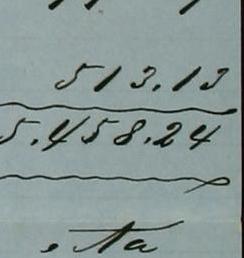 513.13
5.458.24